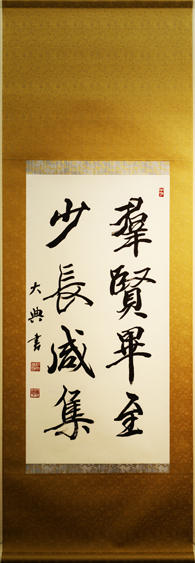 羣賢畢至
少長咸集
大典書